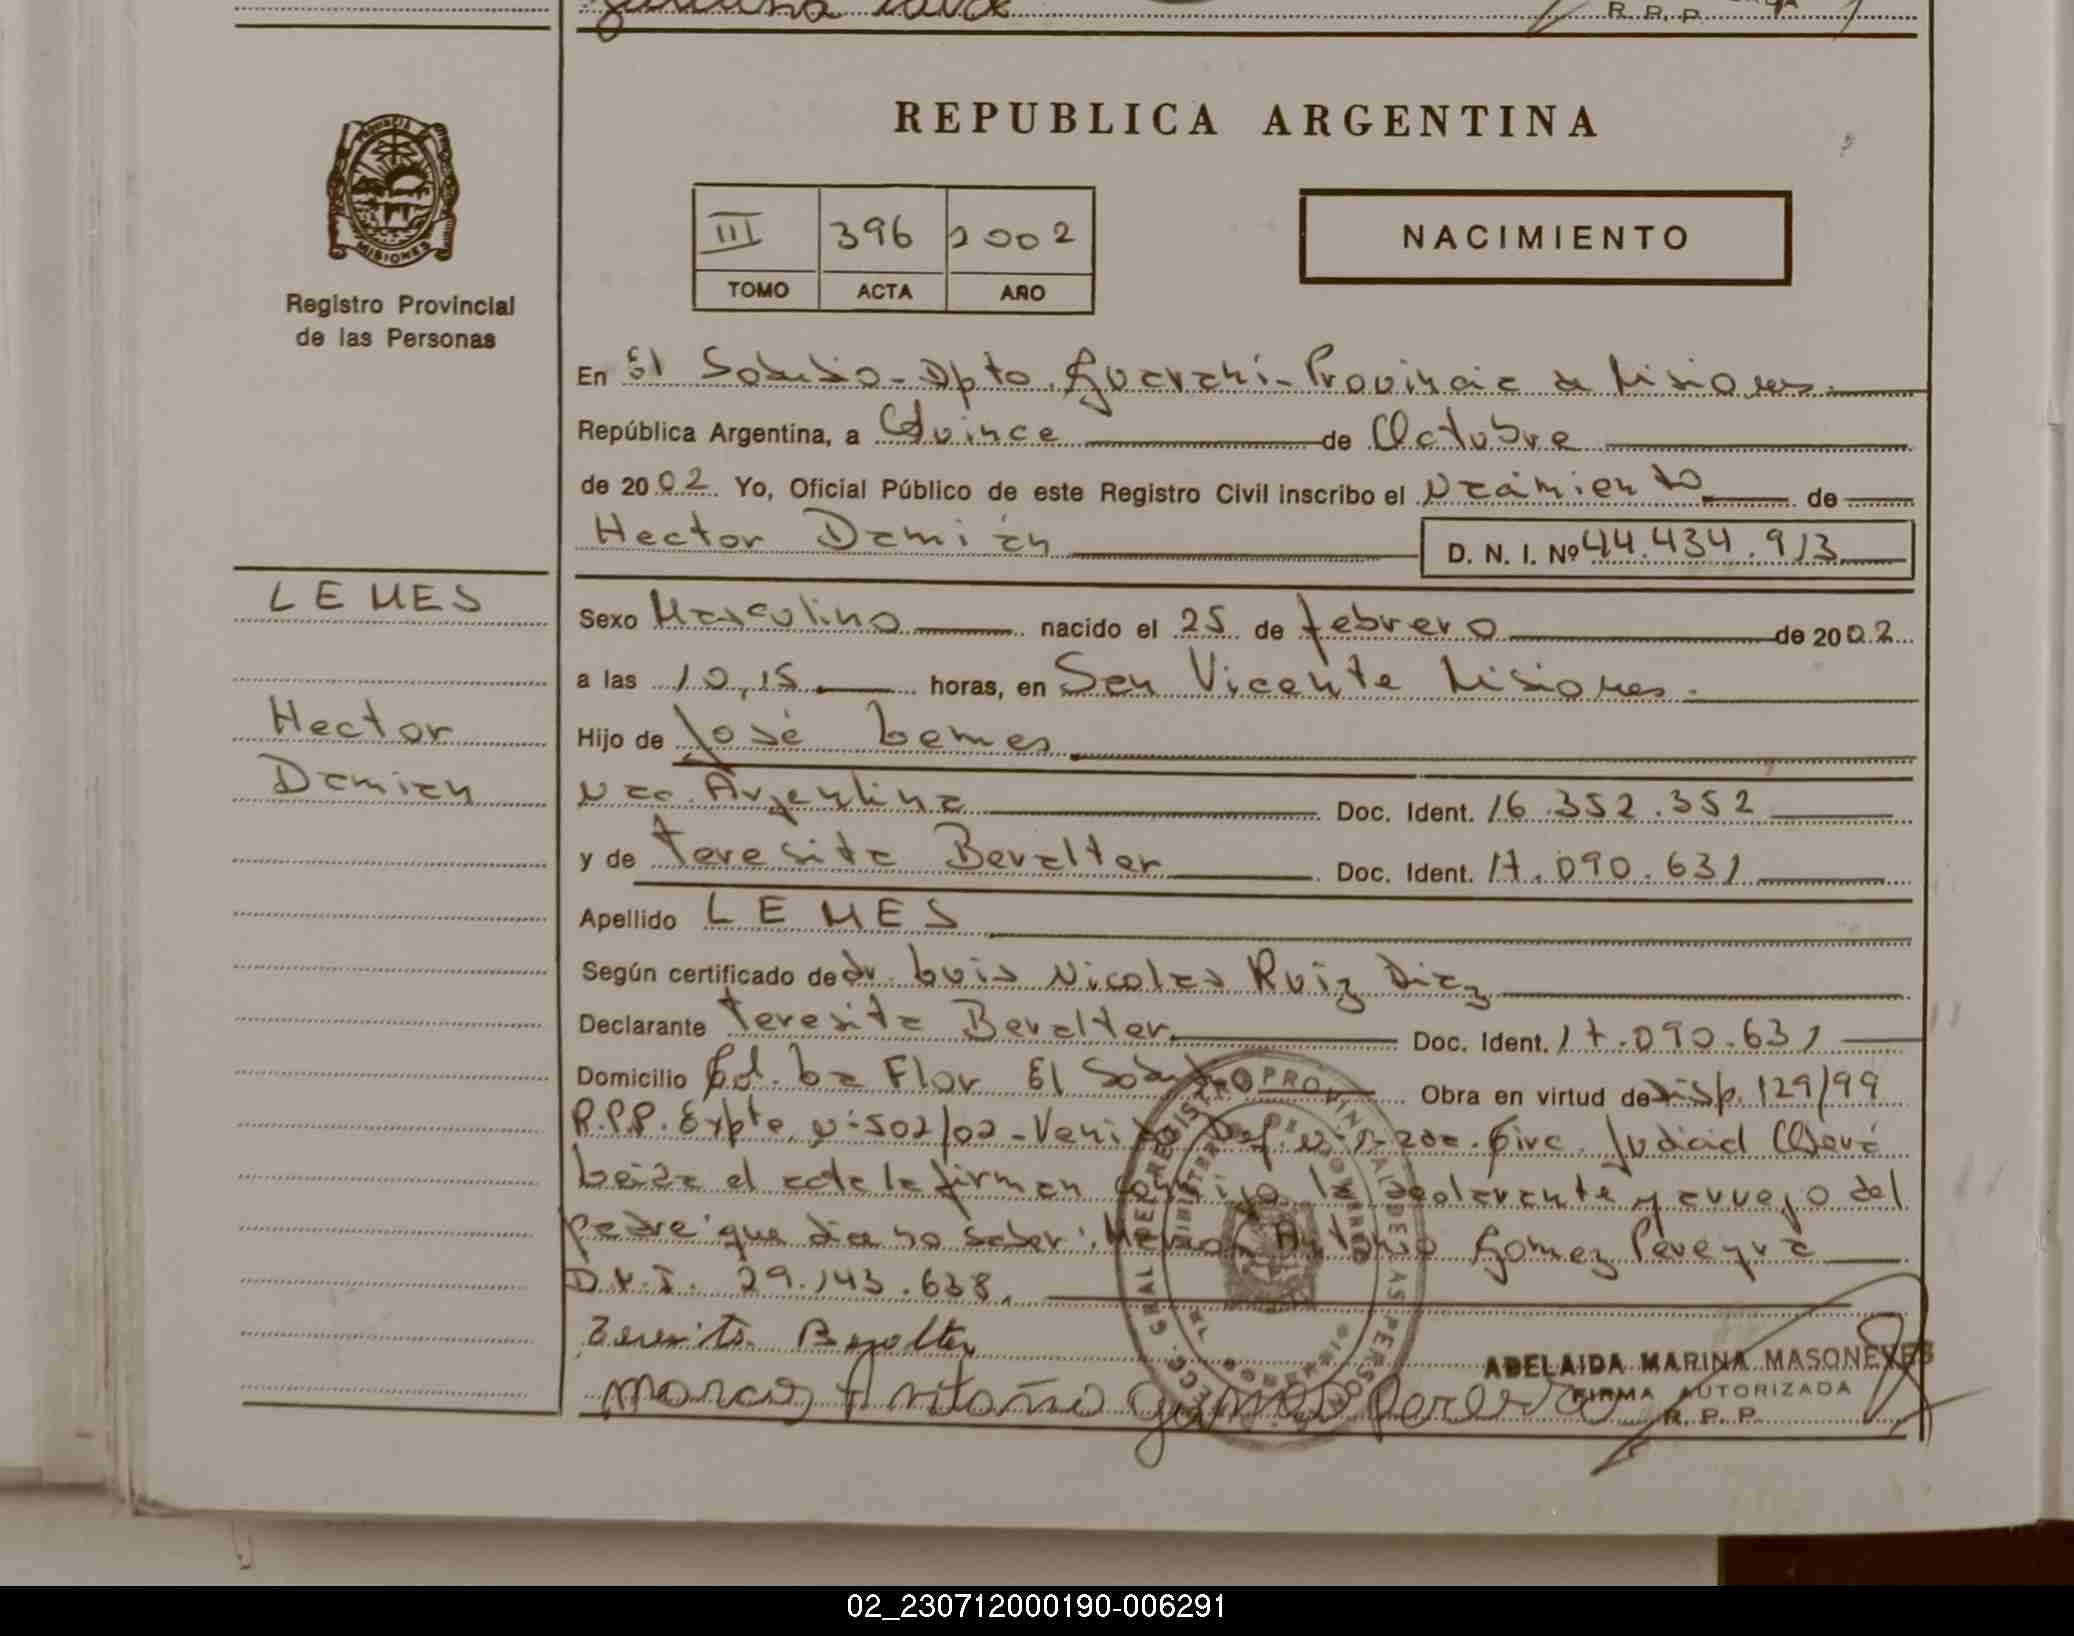 R. P. P.
REPUBLICA ARGENTINA
MISIONES
Registro Provincial
de las Personas
III 396 2002
TOMO ACTA AÑO
NACIMIENTO
En El Soberbio - Dpto. Guarani - Provincia de Misiones.
República Argentina, a Quince de Octubre
de 2002 Yo, Oficial Público de este Registro Civil inscribo el Nacimiento de
Hector Damián D. N. I. Nº 44.434.913
LEMES
Hector
Damian
Sexo Masculino nacido el 25 de febrero de 2002
a las 10,15 horas, en San Vicente Misiones.
Hijo de José Lemes
Nac. Argentina Doc. Ident. 16.352.352
y de Teresita Bevalter Doc. Ident. 17.090.631
Apellido LEMES
Según certificado de dr. Luis Nicolas Ruiz Diaz
Declarante Teresita Bevalter Doc. Ident. 17.090.631
Domicilio Col. La Flor El Soberbio Obra en virtud de Disp. 129/99
R.P.P. Expte. Nº 502/02 - Def. Circ. Judicial Oberá
Leida el acta la firman conmigo la declarante y a ruego del
padre que dice no saber: Marcos Antonio Gomez Pereyra
D.N.I. 29.143.638.
Teresita Bevalter
Marcos Antonio Gomes Pereira
ADELAIDA MARINA MASONEYES
FIRMA AUTORIZADA
R. P. P.
02_230712000190-006291